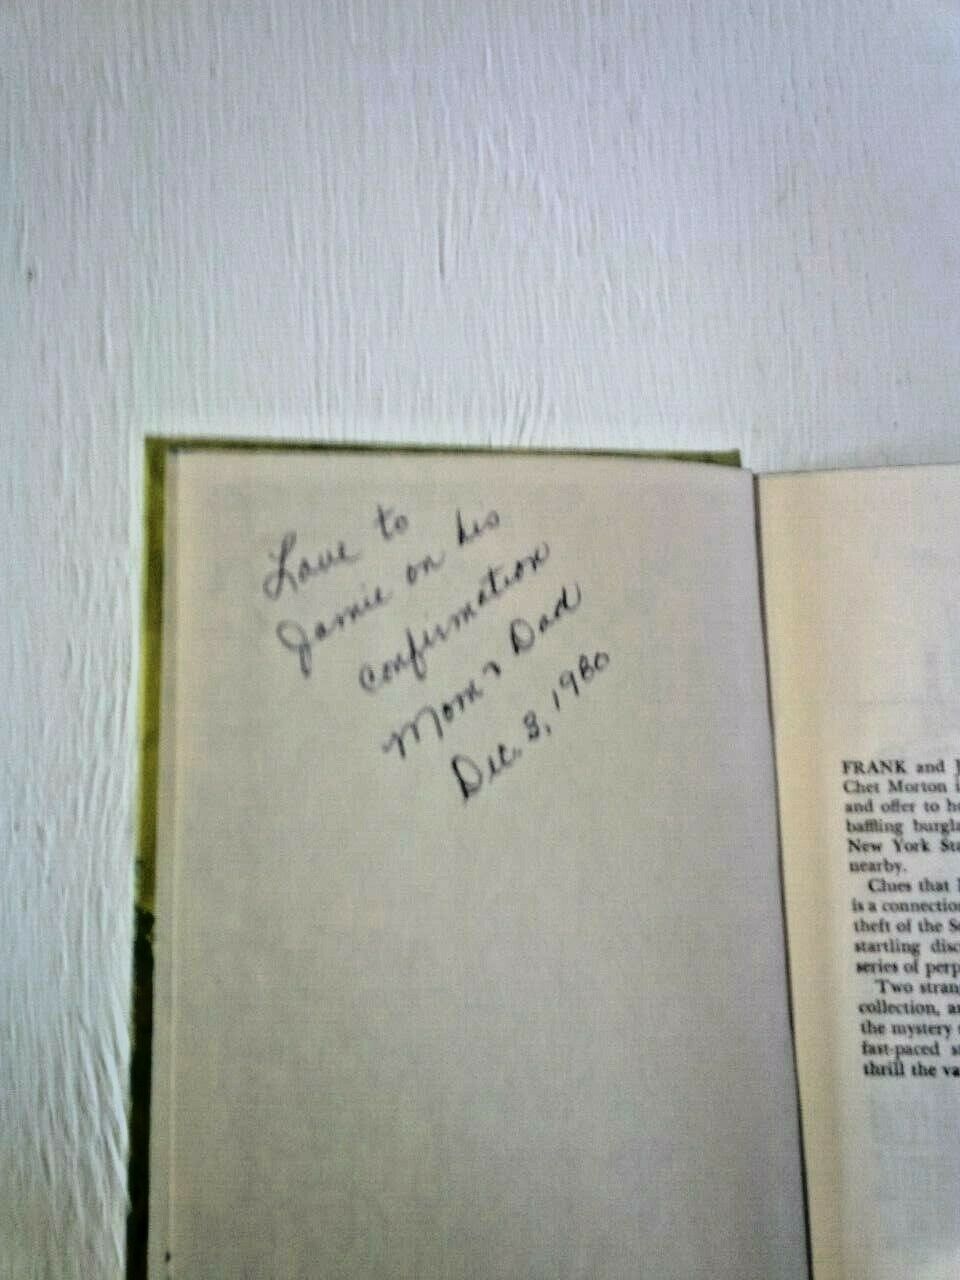 Love to
Jamie on his
confirmation
Mom & Dad
Dec. 3, 1980
FRANK and J
Chet Morton i
and offer to he
baffling burgla
New York Sta
nearby.
Clues that
is a connection
theft of the S
startling disc
series of perp
Two strang
collection, a
the mystery
fast-paced s
thrill the va